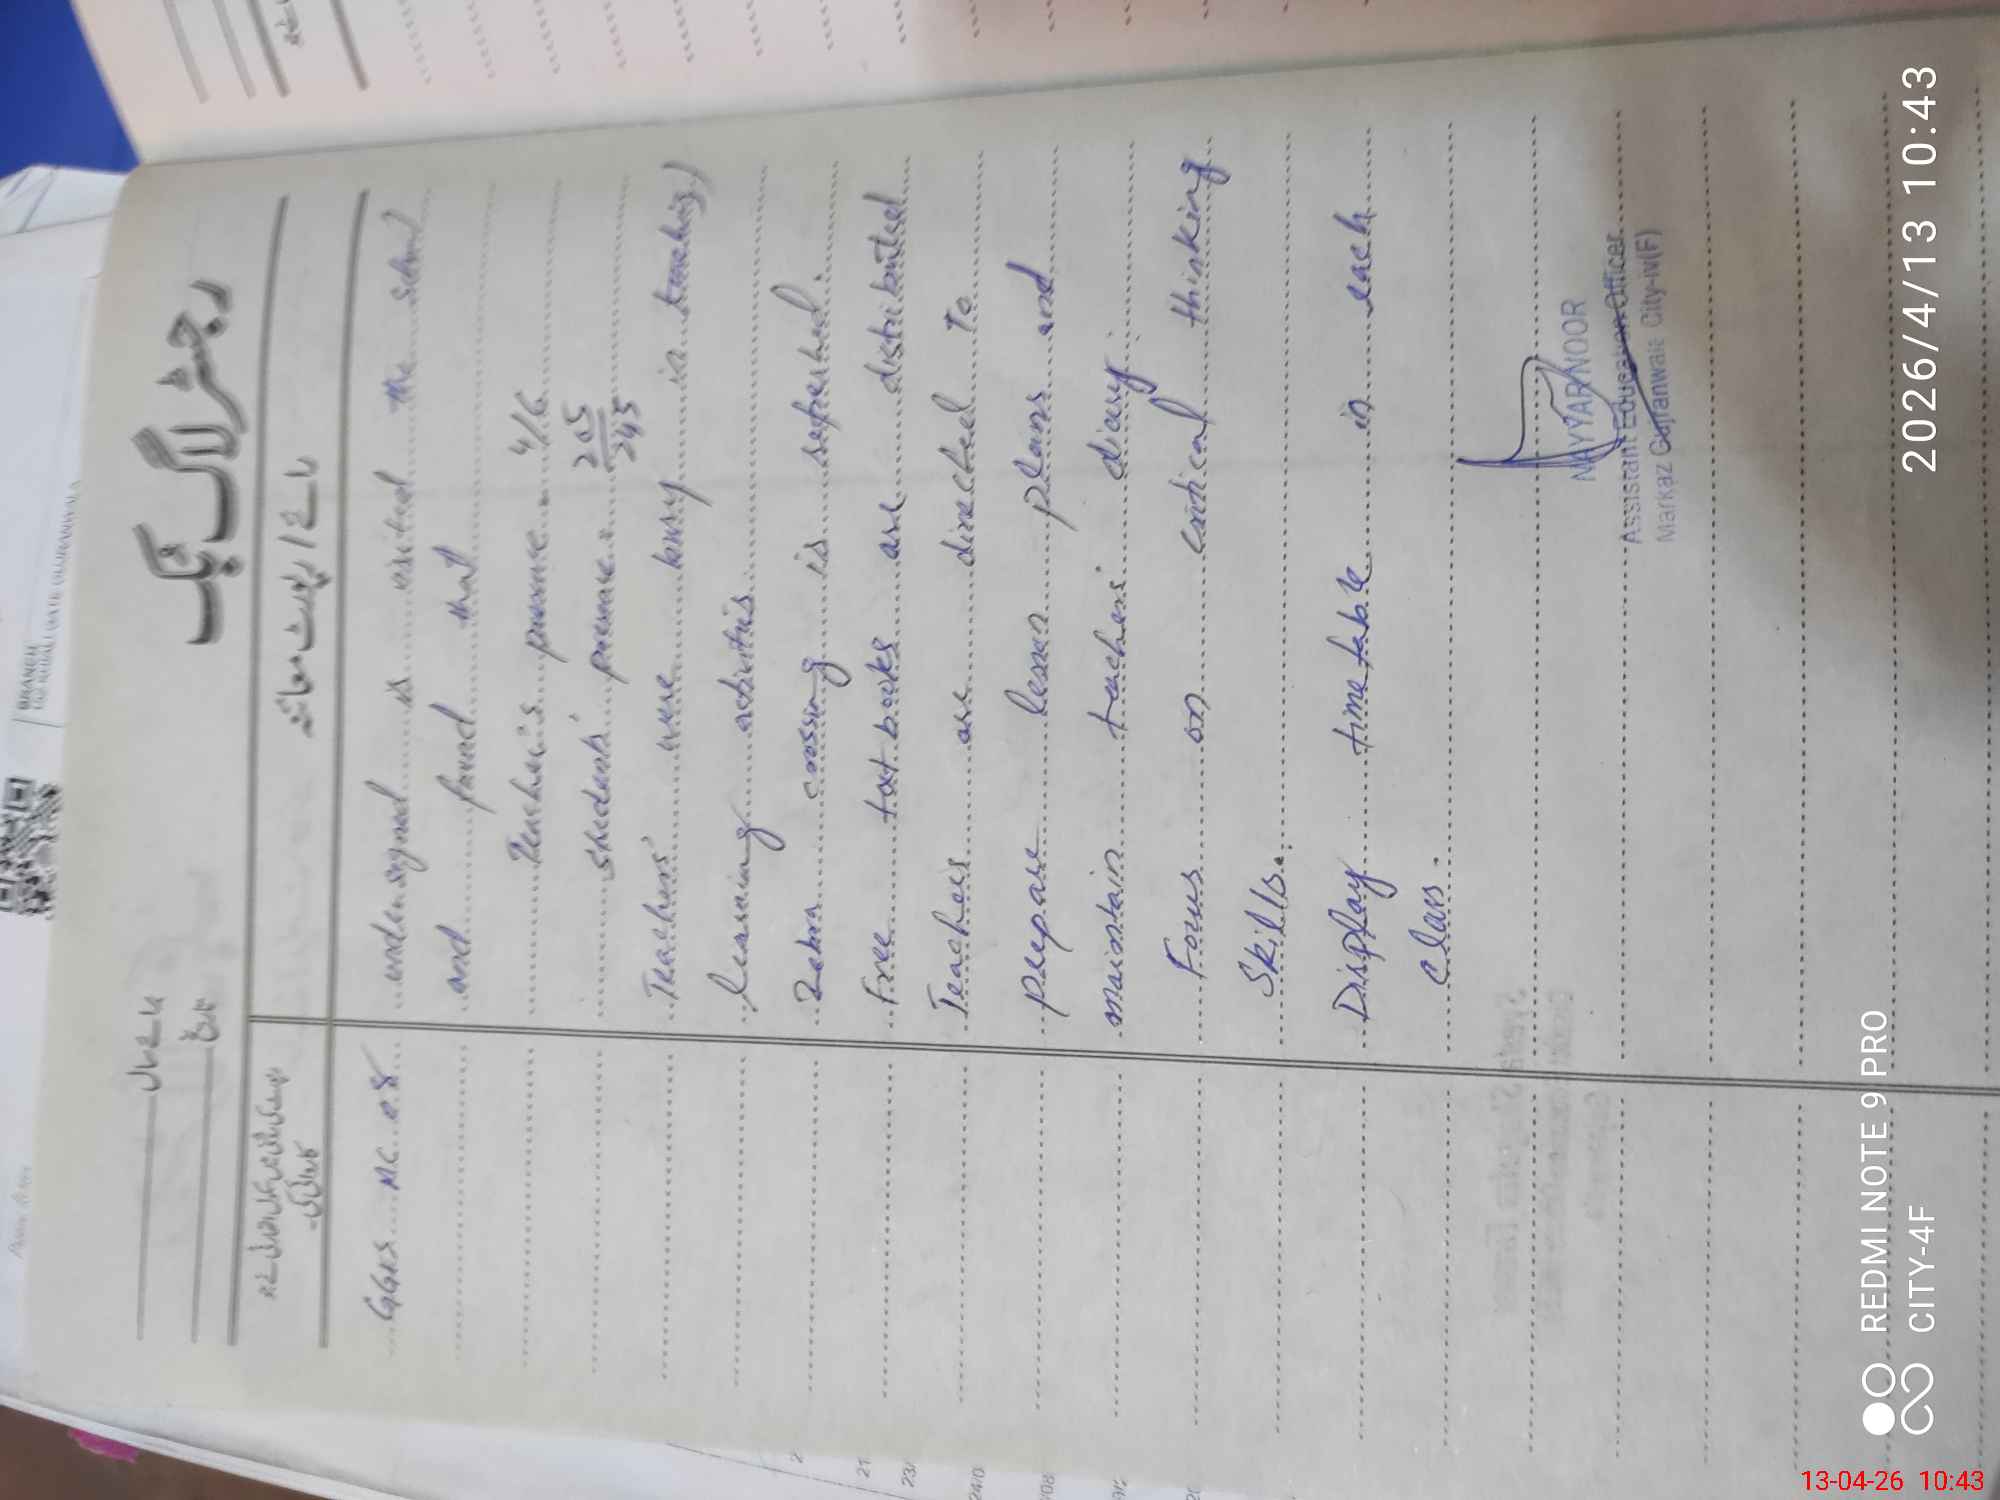 رجسٹر لاگ بک
بابت سال
مدرسہ
رائے / رپورٹ معائنہ
GGES M.C. 08
undersigned is visited the school
and found that
Teacher's presence = 4/6
students' presence = 205/245
Teachers' were busy in teaching
learning activities
Zebra crossing is refreshed.
Free text books are distributed
Teachers are directed to
prepare lesson plans and
maintain teachers' diary.
Focus on critical thinking
Skills.
Display time table in each
class.
NAYYAR NOOR
Assistant Education Officer
Markaz Gujranwala City-IV(F)
BRANCH
REDMI NOTE 9 PRO
CITY-4F
2026/4/13 10:43
13-04-26 10:43